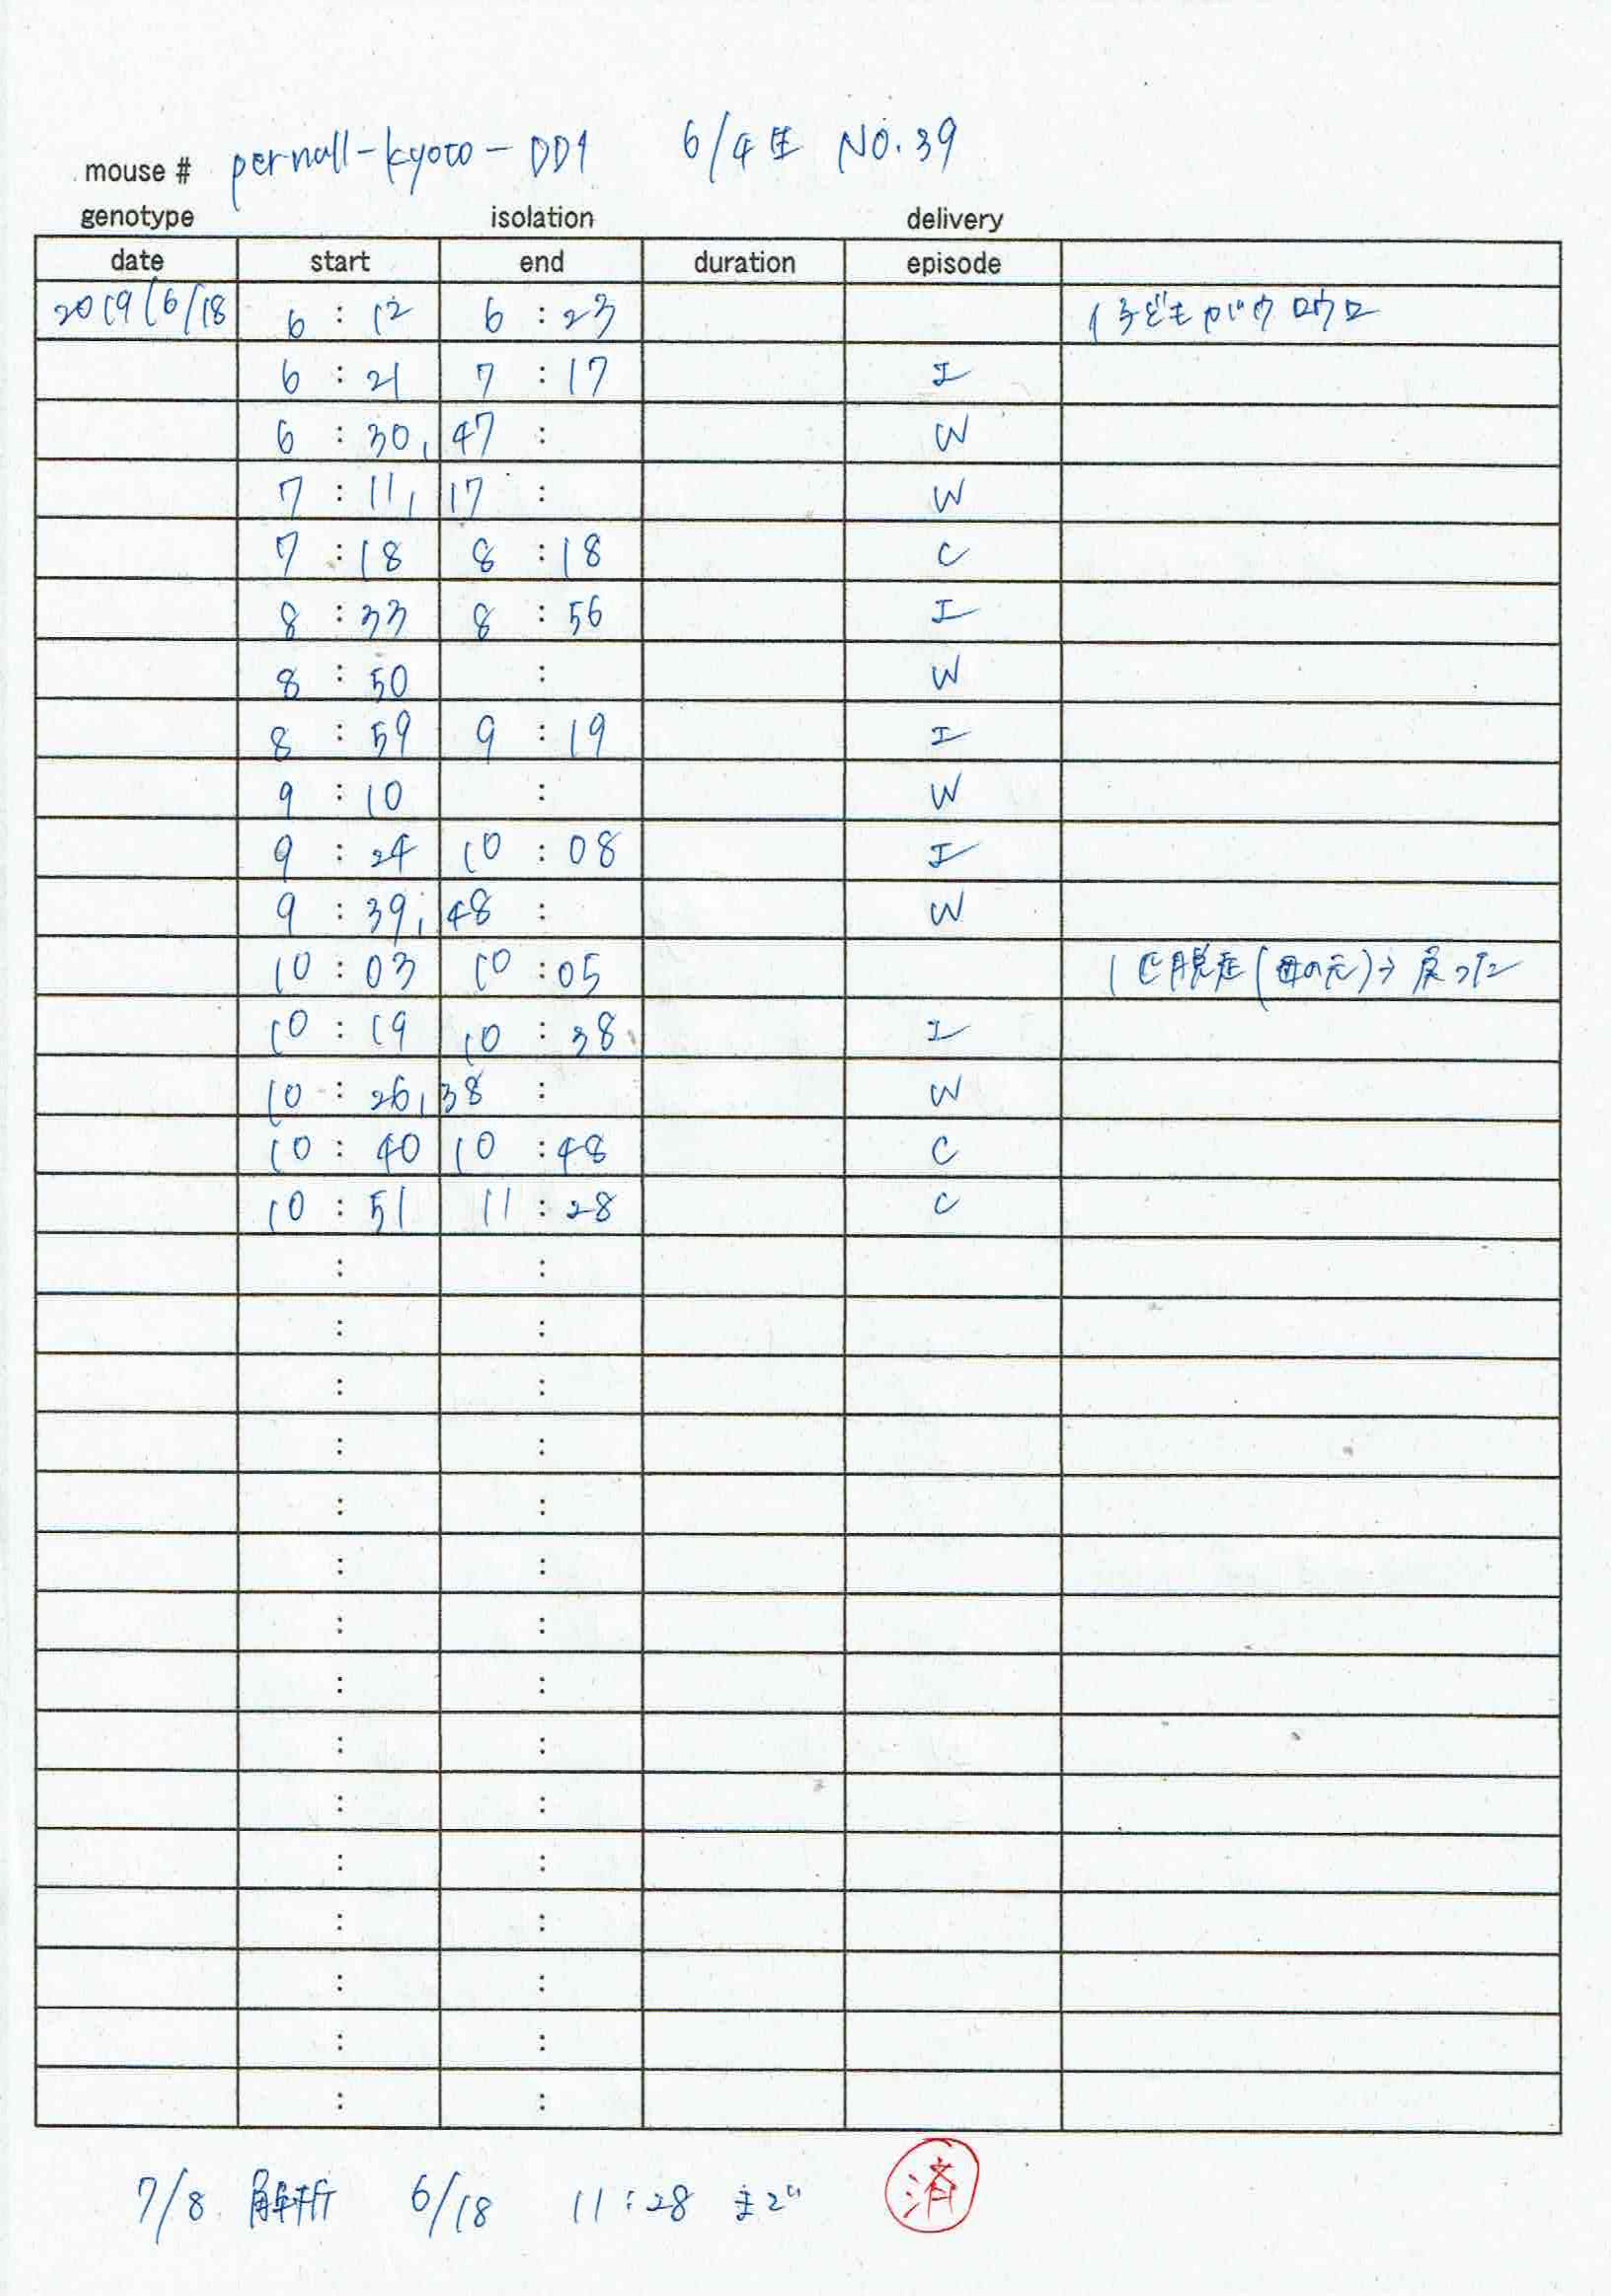 mouse # pernull-kyoto-DD1 6/4生 NO.39
genotype isolation delivery
date start end duration episode
2019/6/18 6:12 6:23 子どもがウロウロ
6:21 7:17 I
6:30, 47 : W
7:11, 17 : W
7:18 8:18 C
8:33 8:56 I
8:50 : W
8:59 9:19 I
9:10 : W
9:24 10:08 I
9:39, 48 : W
10:03 10:05 1匹脱走(母の元)→戻った
10:19 10:38 I
10:26, 38 : W
10:40 10:48 C
10:51 11:28 C
: :
: :
: :
: :
: :
: :
: :
: :
: :
: :
: :
: :
: :
: :
: :
7/8 解析 6/18 11:28 まで 済